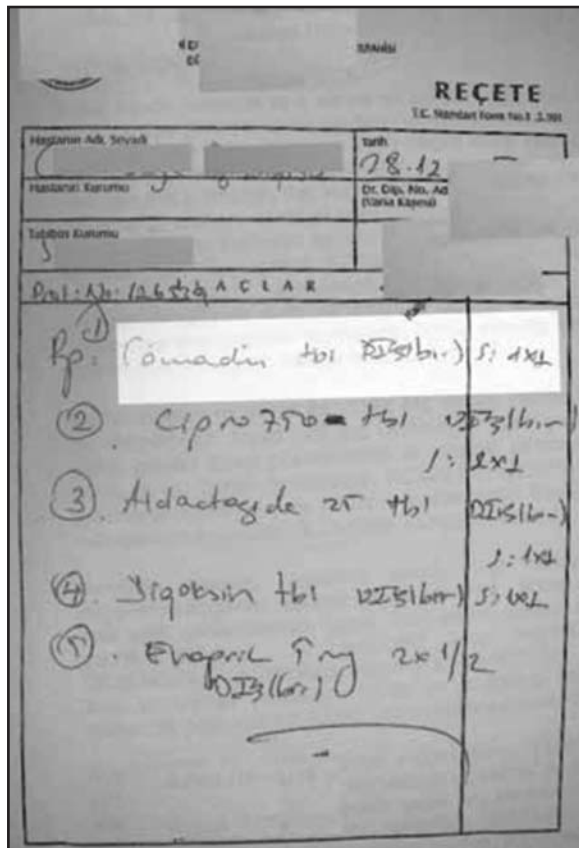 REÇETE
T.C. Standart Form No.1
Hastanın Adı, Soyadı
Tarih
28.12
Hastanın Kurumu
Dr. Dip. No, Ad
(Varsa Kaşesi)
Tabibin Kurumu
Prot. No:
1
Rp: Comadin tbl DI3(bir) S: 1x1
2 Cipro 750 tbl DI3(bir)
S: 2x1
3 Aldactazide 25 tbl DI3(bir)
S: 1x1
4 Digoksin tbl DI3(bir) S: 1x1
5 Enapril 5 mg 2x1/2
DI3(bir)